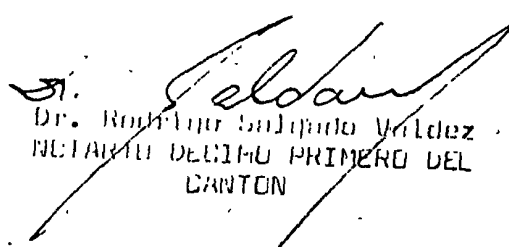 Dr. Rodrigo Salgado Valdez
NOTARIO DECIMO PRIMERO DEL
CANTON